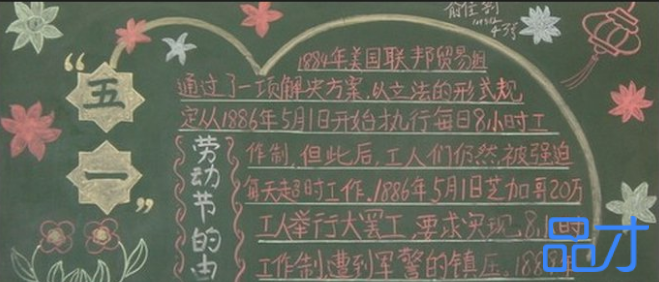 “五一”
劳动节的由
1884年美国联邦贸易组
通过了一项解决方案,以立法的形式规
定从1886年5月1日开始执行每日8小时工
作制,但此后,工人们仍然被强迫
每天超时工作,1886年5月1日芝加哥20万
工人举行大罢工,要求实现8小时
工作制,遭到军警的镇压,188
品才